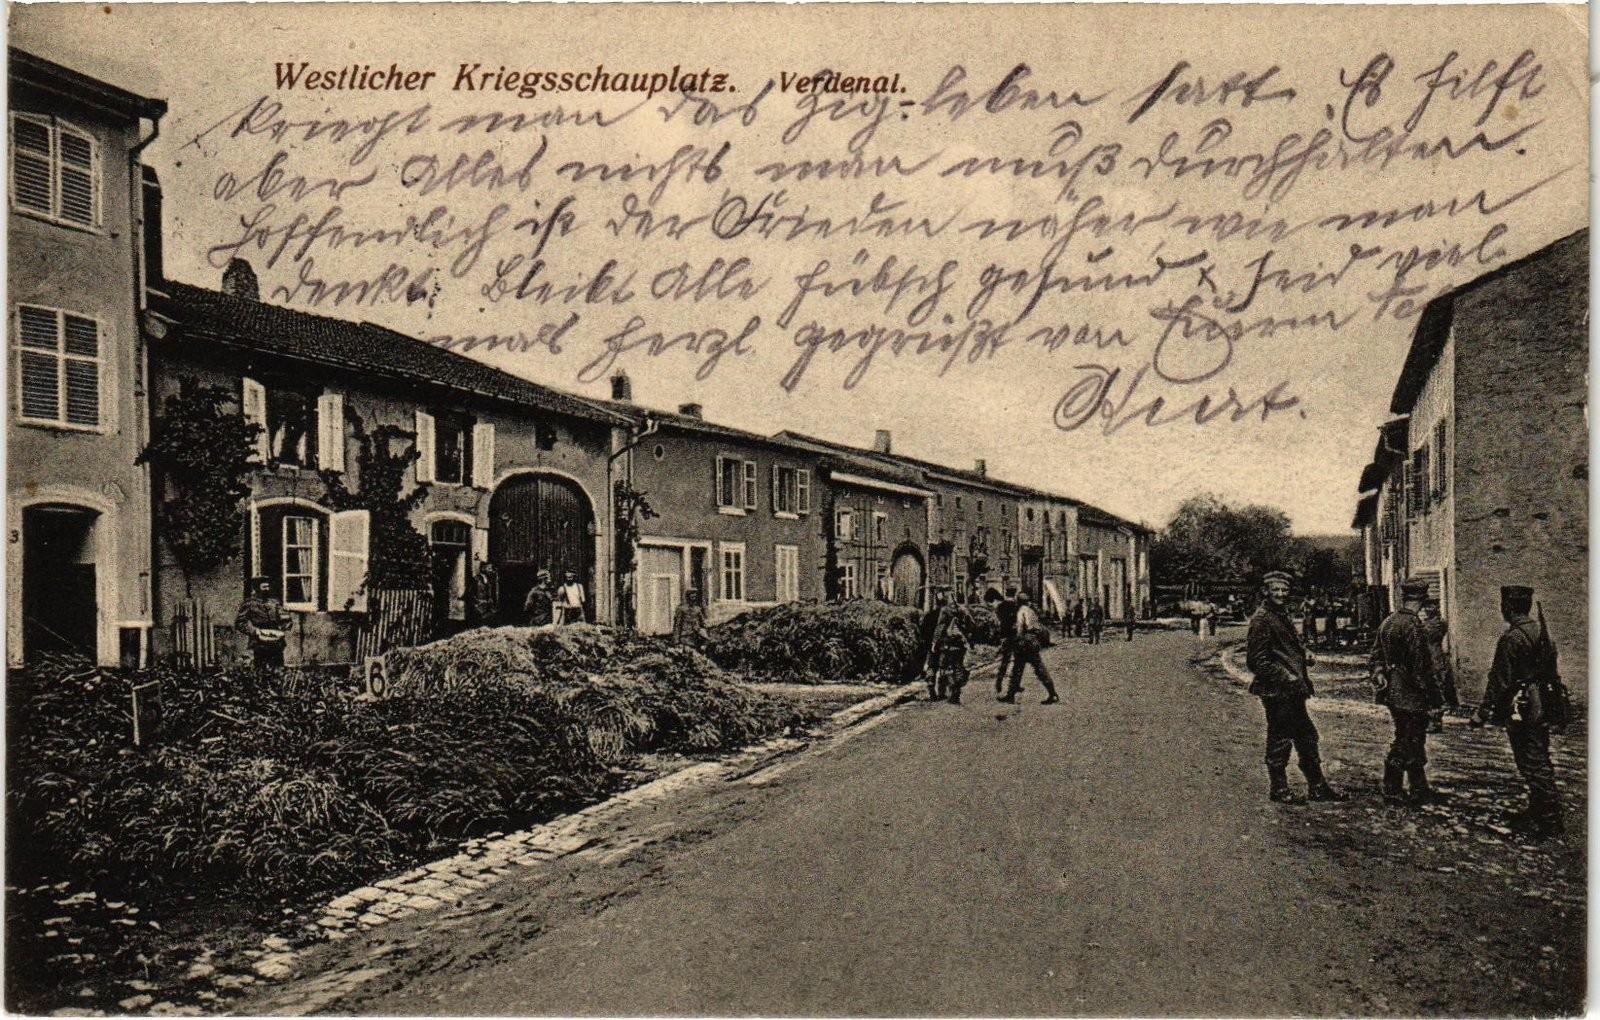 Westlicher Kriegsschauplatz. Verdenal.
kriegt man das Zig.-leben satt. Es hilft
aber Alles nichts, man muß durchhalten.
Hoffendlich ist der Frieden näher wie man
denkt. Bleibt Alle hübsch gesund & seid viel-
mals herzl. gegrüßt von Eurem
Kurt.
3
6